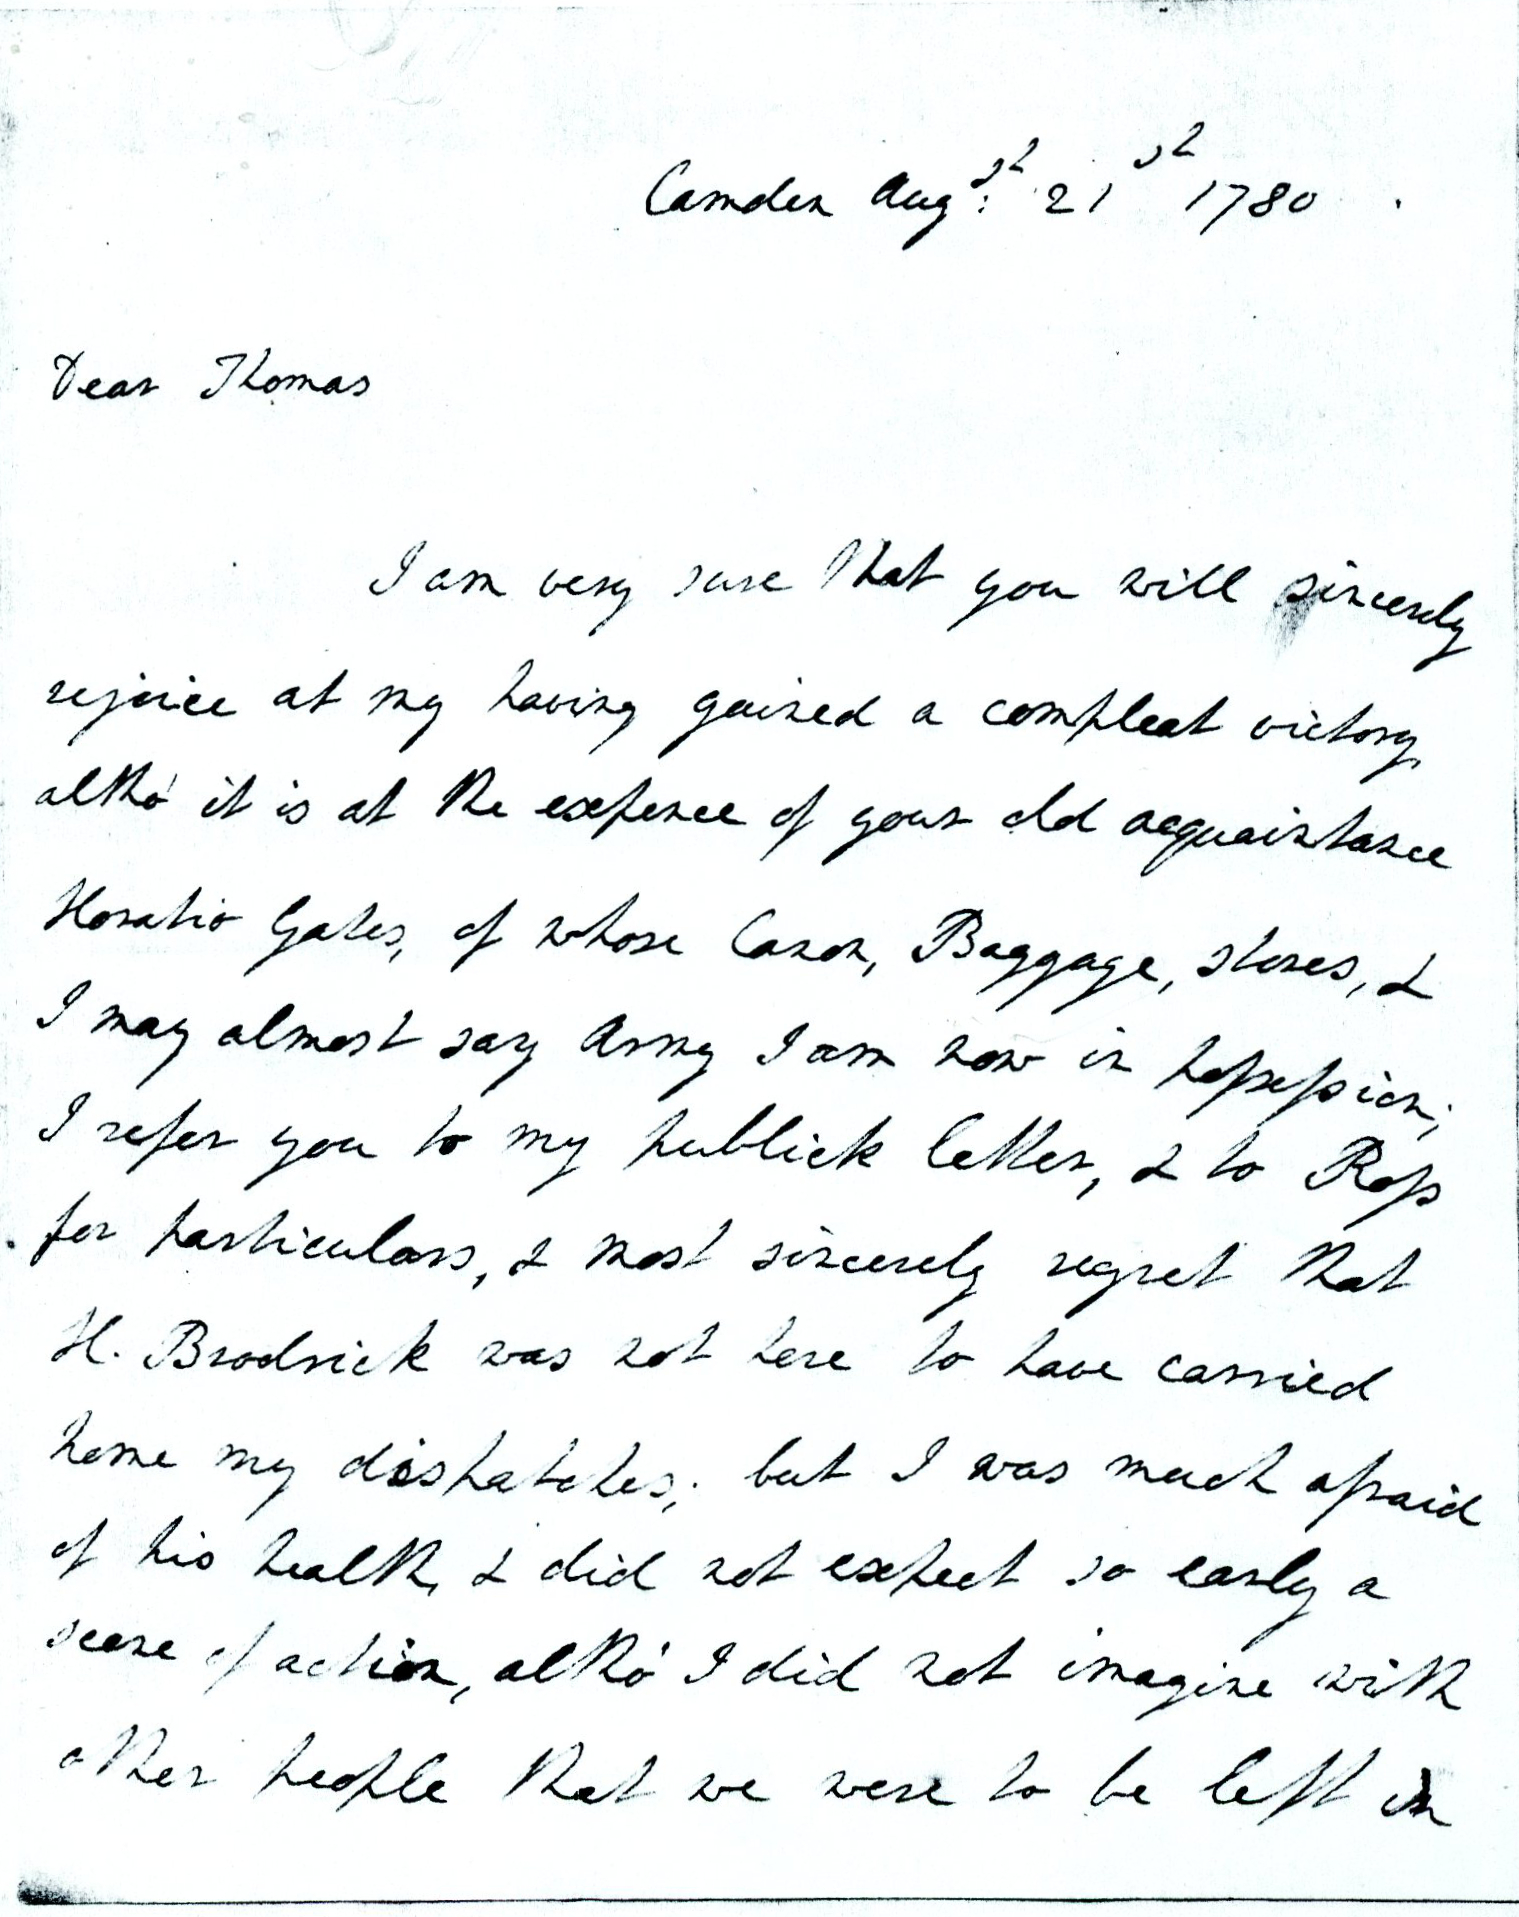 Camden Augst: 21st 1780
Dear Thomas
I am very sure that you will sincerely
rejoice at my having gained a compleat victory,
altho' it is at the expence of your old acquaintance
Horatio Gates, of whose Canon, Baggage, stores, &
I may almost say Army I am now in possession;
I refer you to my publick letter, & to Ross
for particulars, & most sincerely regret that
H. Brodrick was not here to have carried
home my dispatches; but I was much afraid
of his health, & did not expect so early a
scene of action, altho' I did not imagine with
other people that we were to be left in